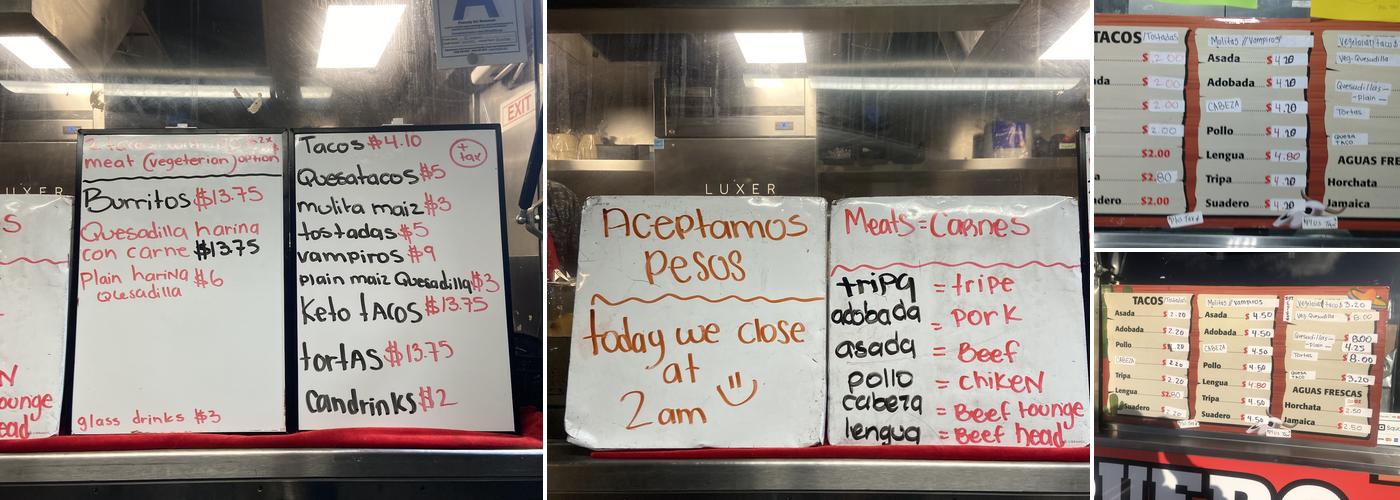 A
EXIT
LUXER
meat (vegeterion) option
Burritos $13.75
Quesadilla harina
con carne $13.75
Plain harina $6
Quesadilla
glass drinks $3
Tacos $4.10
+ tax
Quesatacos $5
mulita maiz $3
tostadas $5
vampiros $9
plain maiz Quesadilla $3
Keto tAcos $13.75
tortAS $13.75
Candrinks $2
LUXER
Aceptamos
pesos
today we close
at
2am
Meats = Carnes
tripa = tripe
adobada = Pork
asada = Beef
pollo = chiKEN
cabeza = Beef tounge
lengua = Beef head
TACOS/Tostadas
$ 2.00
$ 2.00
$ 2.00
$ 2.00
$2.00
$2.80
$2.00
Mulitas //Vampiros
Asada $ 4.20
Adobada $ 4.20
CABEZA $ 4.20
Pollo $ 4.20
Lengua $ 4.80
Tripa $ 4.20
Suadero $ 4.20
Veg. Quesadilla
Quesadillas-
-plain-
Tortas
QUESA
TACO
AGUAS FRE
Horchata
Jamaica
TACOS/Tostadas
Asada $ 2.20
Adobada $ 2.20
Pollo $ 2.20
CABEZA $ 2.20
Tripa $ 2.20
Lengua $ 2.80
Suadero $ 2.20
Mulitas //Vampiros
Asada $ 4.50
Adobada $ 4.50
CABEZA $ 4.50
Pollo $ 4.50
Lengua $ 4.80
Tripa $ 4.50
Suadero $ 4.50
$ 3.20
Veg. Quesadilla $ 8.00
Quesadillas- $ 8.00
-plain- 4.25
Tortas $ 8.00
QUESA
TACO $ 3.20
AGUAS FRESCAS
Horchata $ 2.50
Jamaica $ 2.50